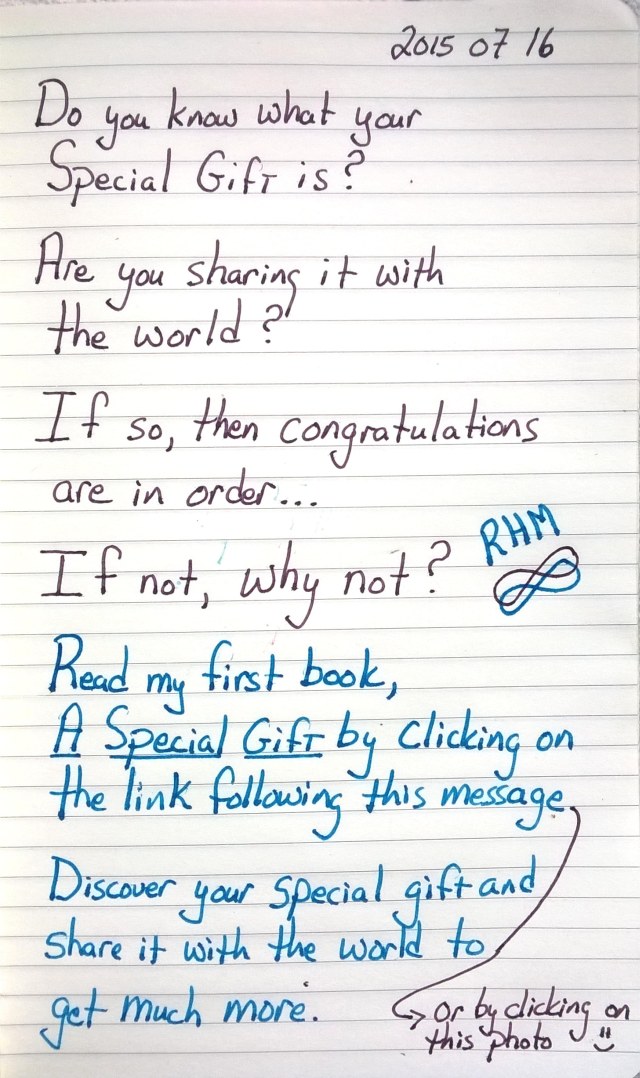 2015 07 16
Do you know what your
Special Gift is?
Are you sharing it with
the world?
If so, then congratulations
are in order...
RHM
If not, why not?
Read my first book,
A Special Gift by clicking on
the link following this message
Discover your special gift and
share it with the world to
get much more.
or by clicking on
this photo